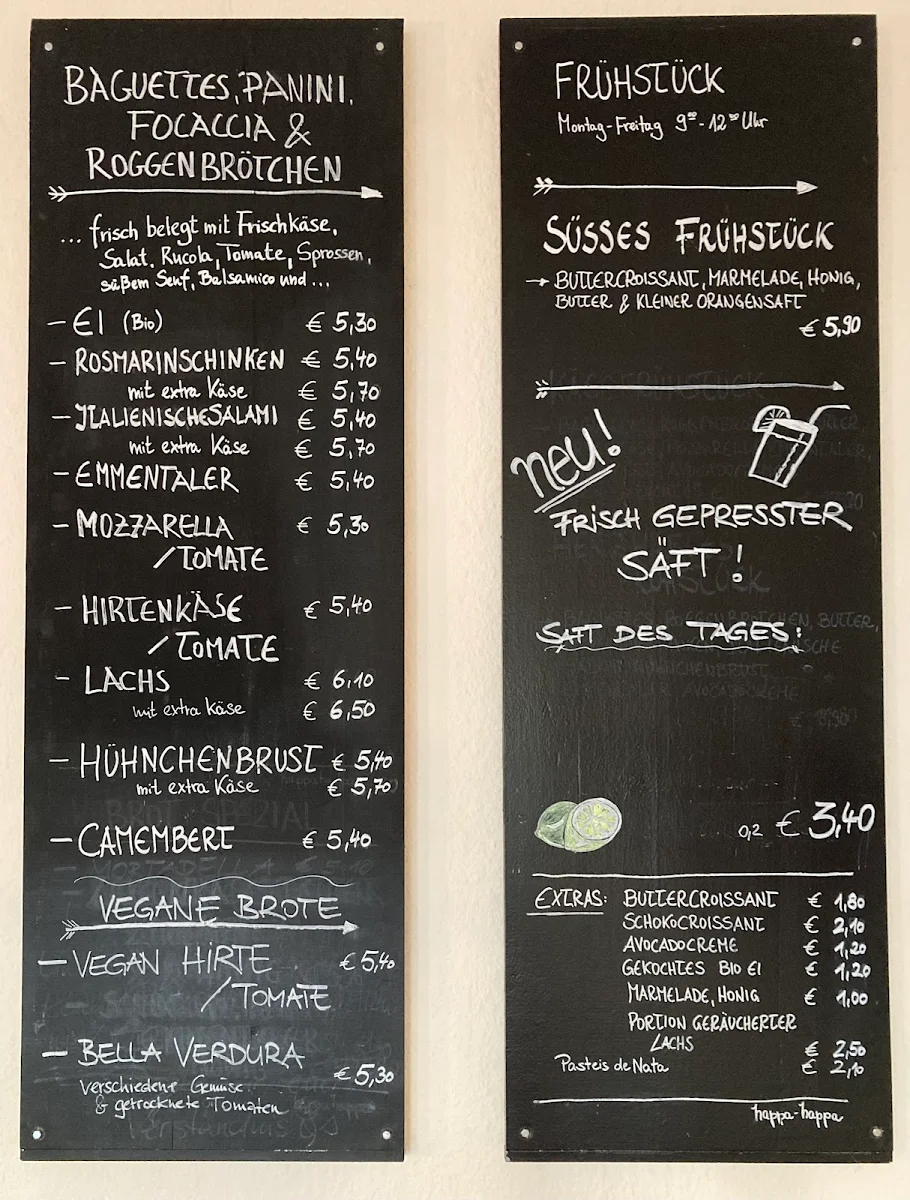 BAGUETTES, PANINI,
FOCACCIA &
ROGGENBRÖTCHEN
... frisch belegt mit Frischkäse,
Salat, Rucola, Tomate, Sprossen,
süßem Senf, Balsamico und ...
- EI (Bio) € 5,30
- ROSMARINSCHINKEN € 5,40
mit extra Käse € 5,70
- ITALIENISCHE SALAMI € 5,40
mit extra Käse € 5,70
- EMMENTALER € 5,40
- MOZZARELLA € 5,30
/TOMATE
- HIRTENKÄSE € 5,40
/TOMATE
- LACHS € 6,10
mit extra Käse € 6,50
- HÜHNCHENBRUST € 5,40
mit extra Käse € 5,70
- CAMEMBERT € 5,40
VEGANE BROTE
- VEGAN HIRTE € 5,40
/TOMATE
- BELLA VERDURA € 5,30
verschiedene Gemüse
& getrocknete Tomaten
FRÜHSTÜCK
Montag-Freitag 9°° - 12°° Uhr
SÜSSES FRÜHSTÜCK
→ BUTTERCROISSANT, MARMELADE, HONIG,
BUTTER & KLEINER ORANGENSAFT
€ 5,90
neu!
FRISCH GEPRESSTER
SÄFT!
SAFT DES TAGES:
0,2 € 3,40
EXTRAS: BUTTERCROISSANT € 1,80
SCHOKOCROISSANT € 2,10
AVOCADOCREME € 1,20
GEKOCHTES BIO EI € 1,20
MARMELADE, HONIG € 1,00
PORTION GERÄUCHERTER
LACHS € 2,50
Pasteis de Nata € 2,10
happa-happa